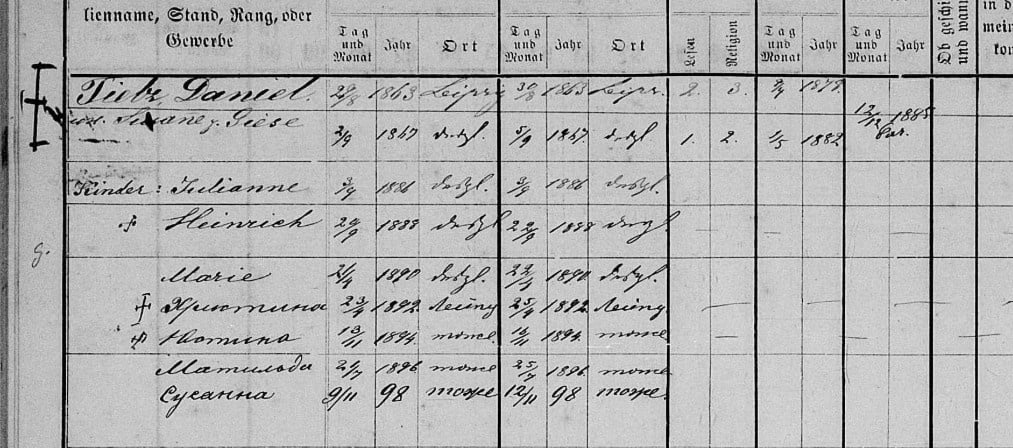 lienname, Stand, Rang, oder Gewerbe Tag und Monat Jahr Ort Tag und Monat Jahr Ort Lesen Religion Tag und Monat Jahr Jahr Ob geschi und wann in d mein kon
Daniel. 29/8 1863 Leipzig 30/8 1863 Leipz. 2. 3. 1879.
2/9 1867 desgl. 5/9 1867. desgl. 1. 2. 1/5 1882 12/12 1885
Kinder: Julianne 3/9 1886 desgl. 3/9 1886 desgl.
Heinrich 20/9 1888 desgl. 22/9 1888 desgl.
Marie 21/4 1890 desgl. 22/4 1890. desgl.
g.
Христина 23/4 1892. Лейпц 25/4 1892. Лейпц
13/11 1894. тоже 1894. тоже
Матильда 1896 тоже 1896. тоже
Сусанна 9/11 98 тоже 12/11 98 тоже.